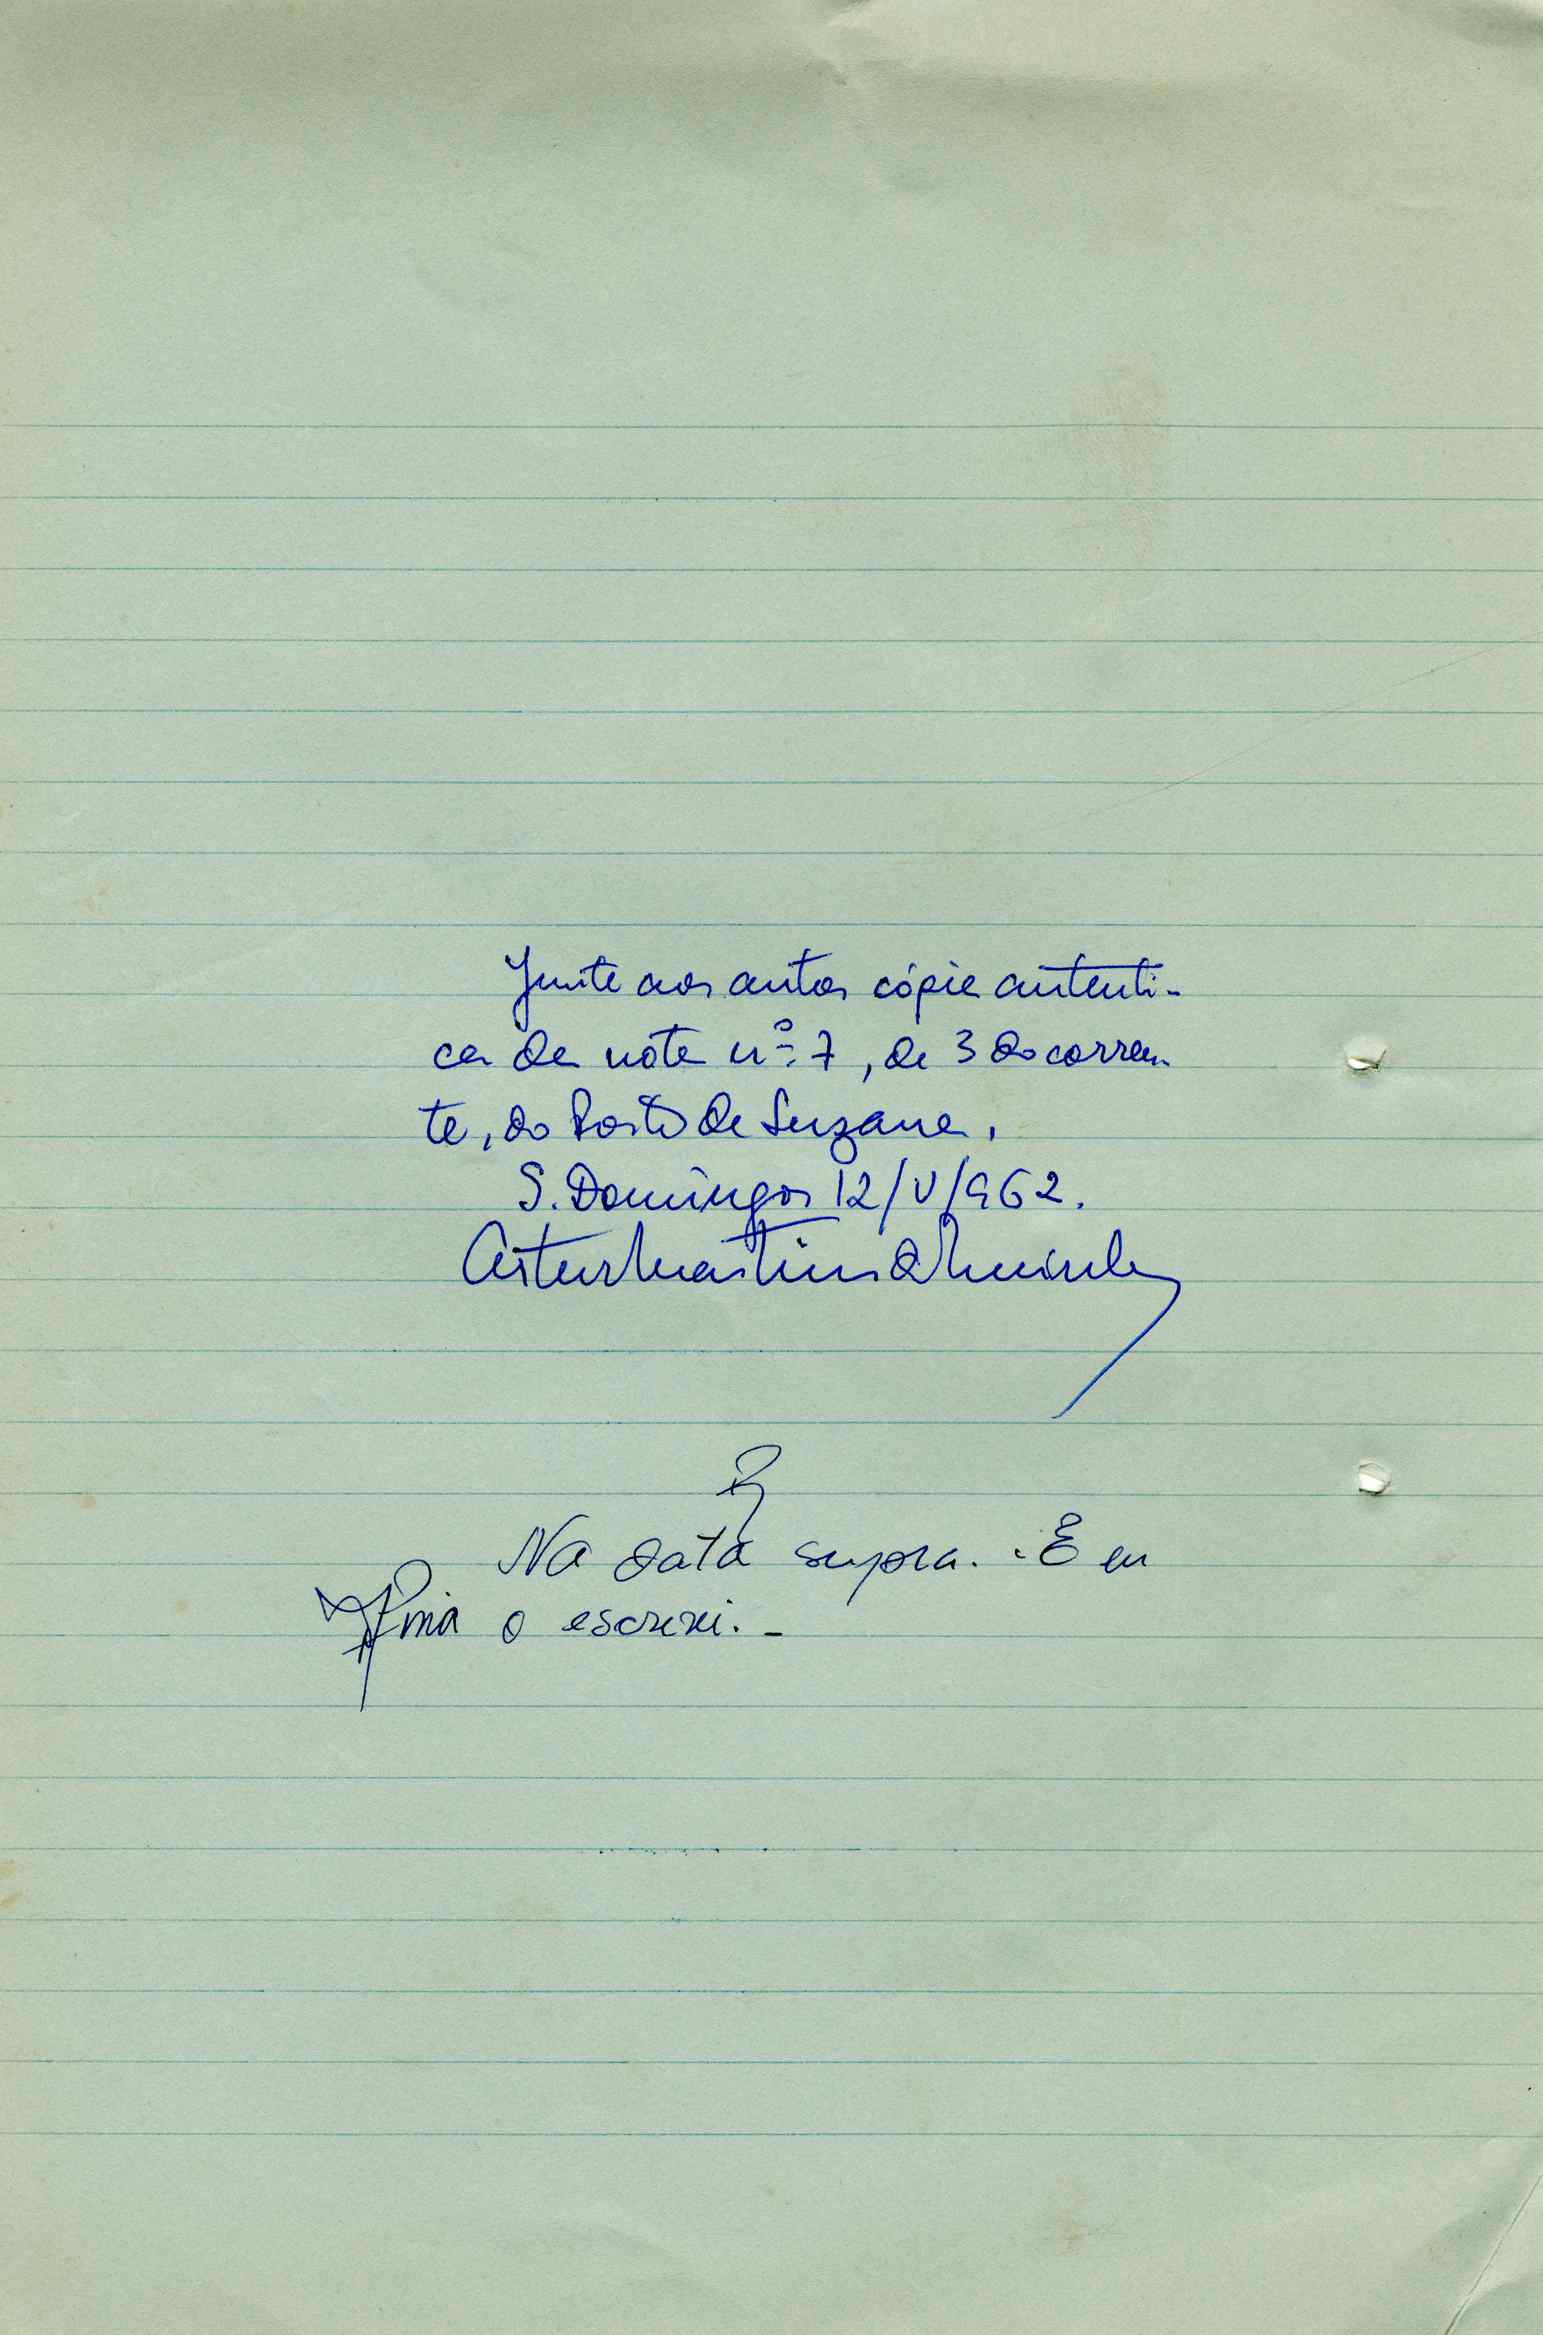 Junte aos autos cópia autenti-
ca da nota nº 7, de 3 do corren-
te, do Posto de Suzana.
S. Domingos 12/V/962.
Artur Martins de Meireles
R
Na data supra. - E eu
o escrevi. -